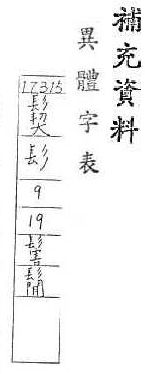 補充資料
異體字表
17315
髟
9
19
鬜
鬝